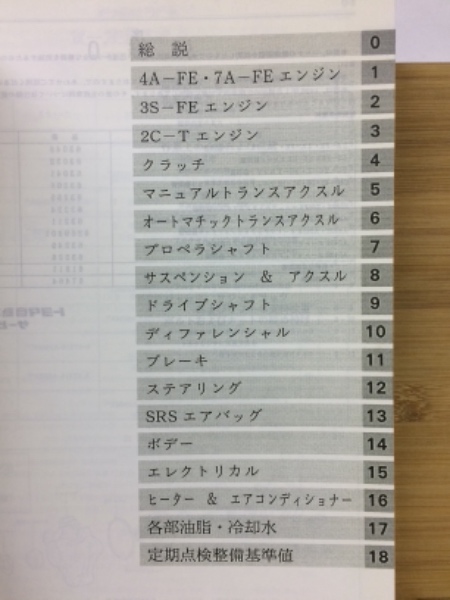 総 説 0
4A−FE・7A−FEエンジン 1
3S−FEエンジン 2
2C−Tエンジン 3
クラッチ 4
マニュアルトランスアクスル 5
オートマチックトランスアクスル 6
プロペラシャフト 7
サスペンション & アクスル 8
ドライブシャフト 9
ディファレンシャル 10
ブレーキ 11
ステアリング 12
SRSエアバッグ 13
ボデー 14
エレクトリカル 15
ヒーター & エアコンディショナー 16
各部油脂・冷却水 17
定期点検整備基準値 18